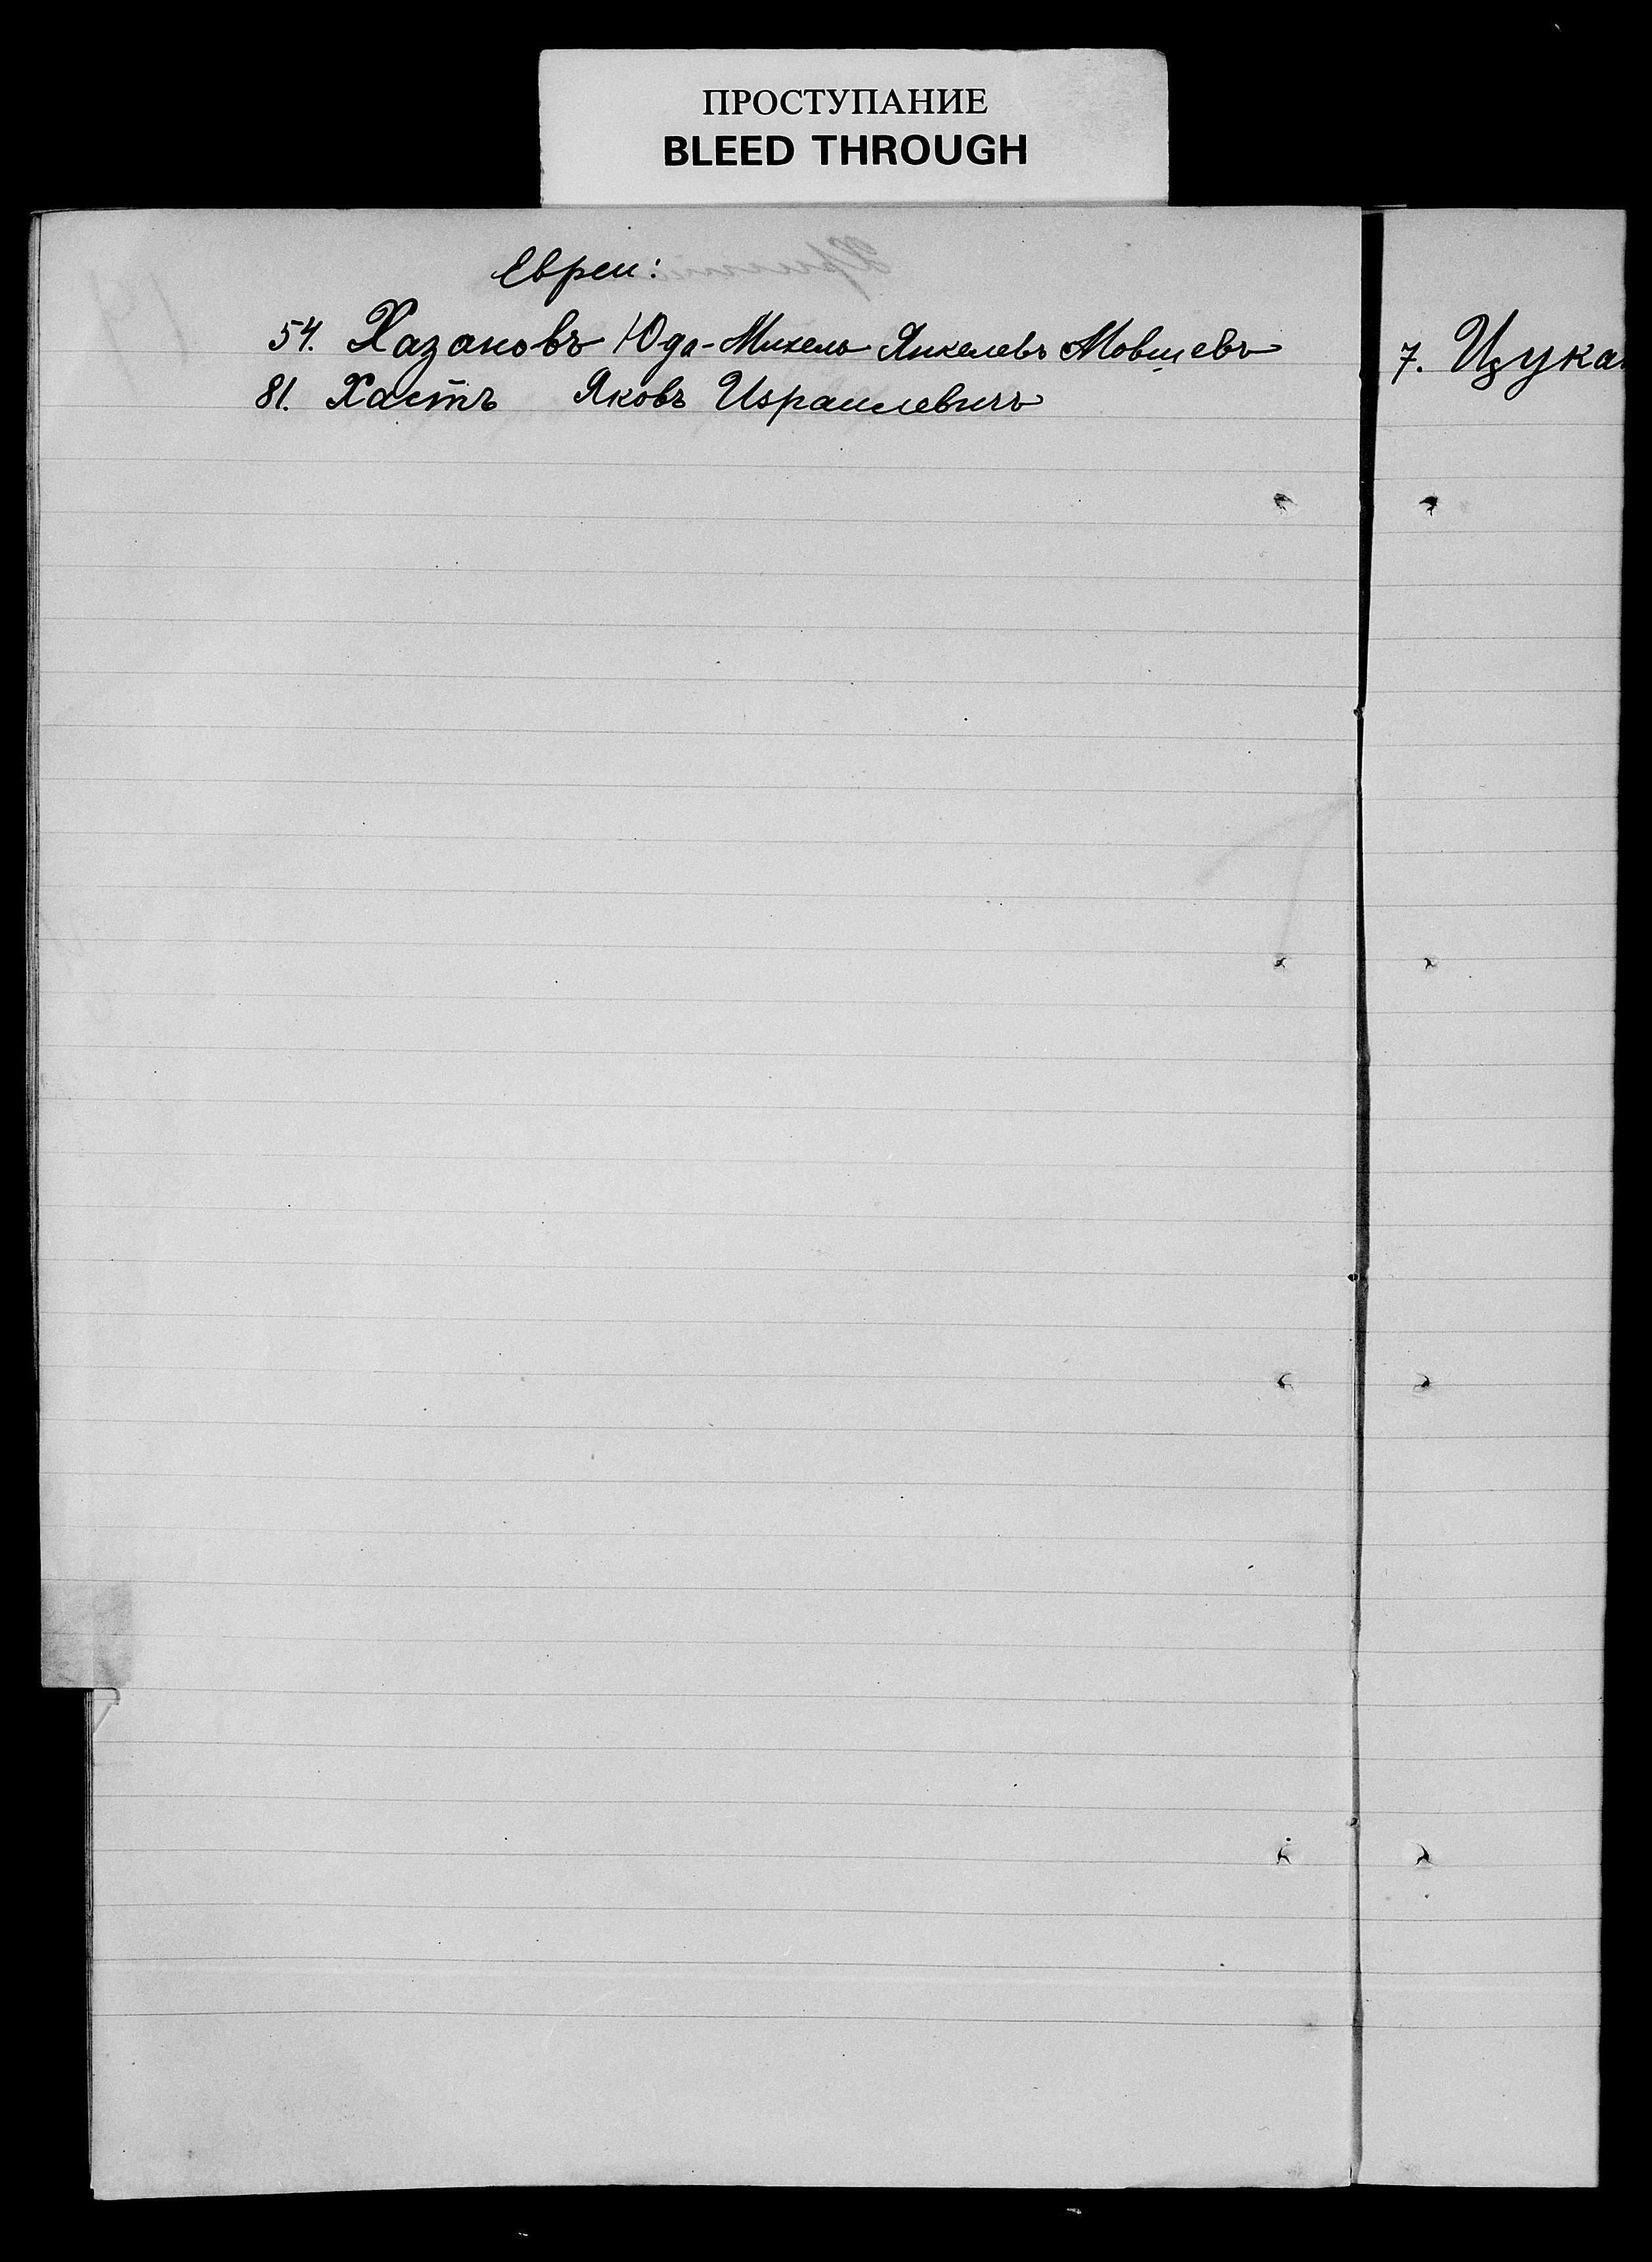 ПРОСТУПАНИЕ
BLEED THROUGH
Евреи:
54. Хазановъ Юда-Михель Янкелевъ Мовшевъ
81. Хастъ Яковъ Израилевичъ
7. Цзукан